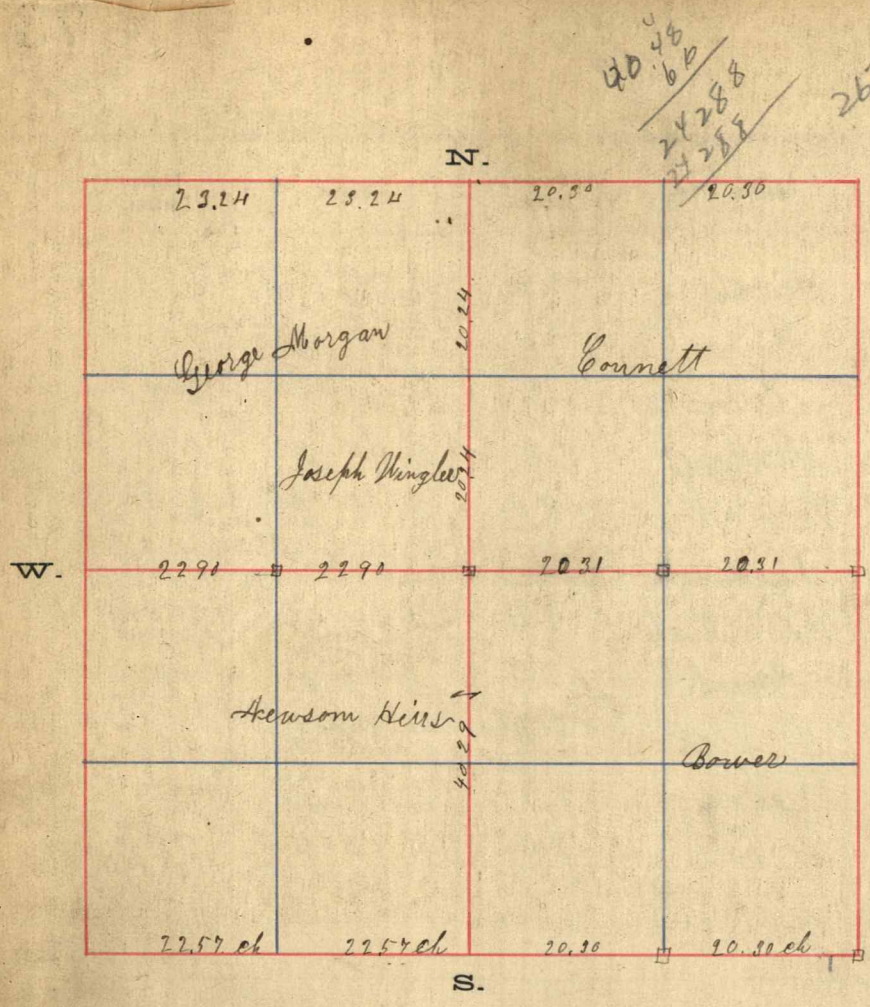 40.48
66
24288
24288
26
N.
23.24 23.24 20.30 20.30
20.24
George Morgan
Connett
Joseph Wingler
20.24
W.
22 90 22 90 20 31 20.31
Newsom Heirs
40 29
Bower
22.57 ch 22.57 ch 20.30 20.30 ch
S.